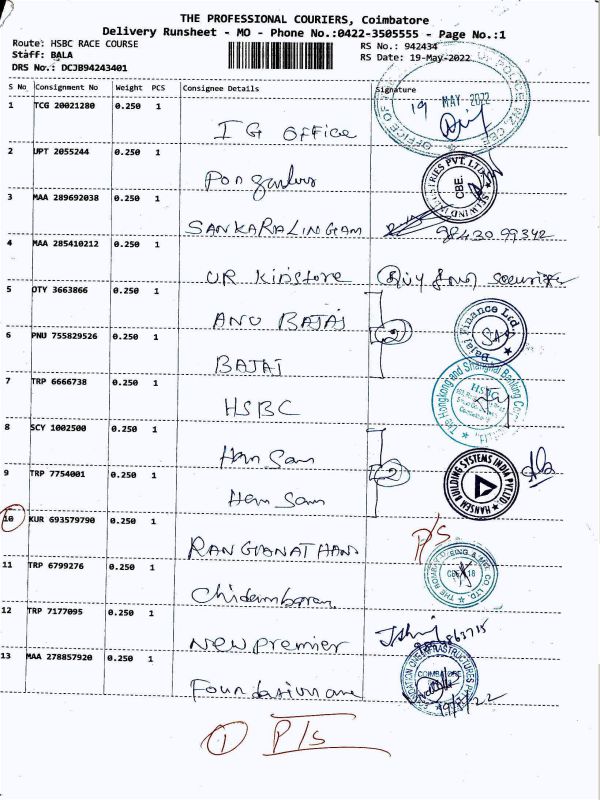 THE PROFESSIONAL COURIERS, Coimbatore
Delivery Runsheet - MO - Phone No.:0422-3505555 - Page No.:1
Route: HSBC RACE COURSE RS No.: 942434
Staff: BALA RS Date: 19-May-2022
DRS No.: DCJB94243401
S No Consignment No Weight PCS Consignee Details Signature
1 TCG 20021280 0.250 1 IG OFFICE 19 MAY 2022
2 UPT 2055244 0.250 1
CBE.
3 MAA 289692038 0.250 1 SANKARALINGAM 98430 99342
4 MAA 285410212 0.250 1 UR Kidstore
5 OTY 3663866 0.250 1 ANU BAJAJ
2 Bajaj Finance Ltd.
6 PNU 755829526 0.250 1 BAJAJ
7 TRP 6666738 0.250 1 HSBC
The Hongkong and Shanghai Banking Cor
HSBC
8 SCY 1002500 0.250 1 Hem Sam
2 HANSEN BUILDING SYSTEMS INDIA PVT.LTD.
9 TRP 7754001 0.250 1 Hem Sam
10 KUR 693579790 0.250 1 RANGANATHAN P/S
11 TRP 6799276 0.250 1 Chidambaram
12 TRP 7177095 0.250 1 New premier
13 MAA 278857920 0.250 1 Foundation one
COIMBATORE
1 P/S